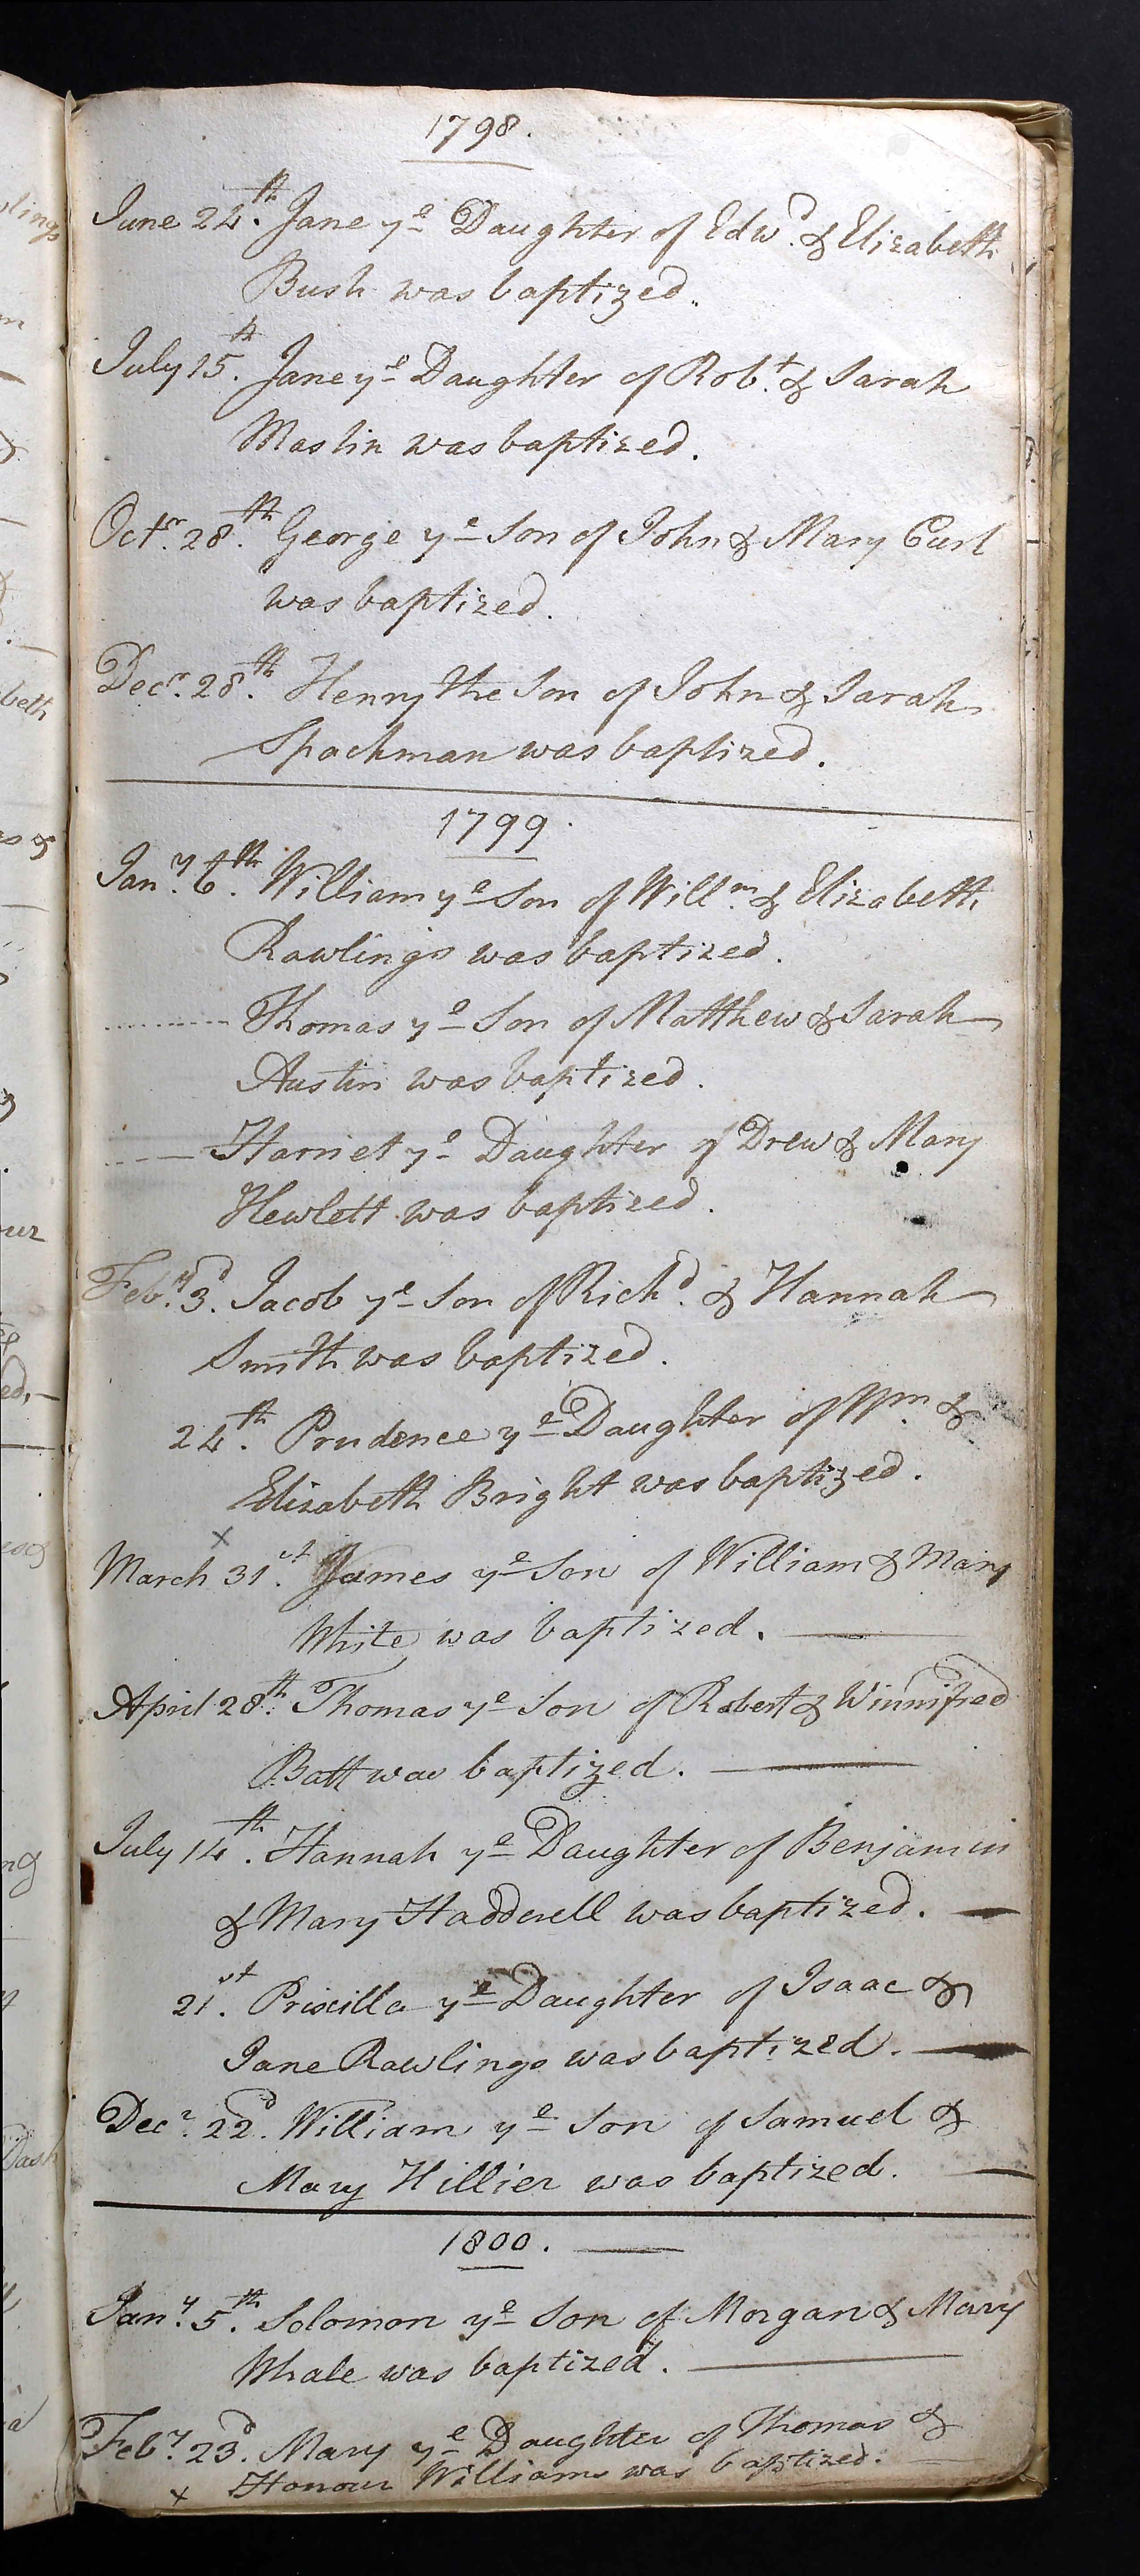 1798.
June 24th. Jane ye Daughter of Edwd. & Elizabeth
Bush was baptized.
July 15th. Jane ye Daughter of Robt. & Sarah
Maslin was baptized.
Octr. 28th. George ye Son of John & Mary Earl
was baptized.
Decr. 28th. Henry the Son of John & Sarah
Spackman was baptized.
1799.
Jany. 6th. William ye Son of Willm. & Elizabeth
Rawlings was baptized.
Thomas ye Son of Matthew & Sarah
Austin was baptized.
Harriet ye Daughter of Drew & Mary
Hewlett was baptized.
Feby. 3d. Jacob ye Son of Richd. & Hannah
Smith was baptized.
24th. Prudence ye Daughter of Wm. &
Elizabeth Bright was baptized.
x
March 31st. James ye Son of William & Mary
White was baptized.
April 28th. Thomas ye Son of Robert & Winnifred
Batt was baptized.
July 14th. Hannah ye Daughter of Benjamin
& Mary Hadderell was baptized.
21st. Priscilla ye Daughter of Isaac &
Jane Rawlings was baptized.
Decr. 22d. William ye Son of Samuel &
Mary Hillier was baptized.
1800.
Jany. 5th. Solomon ye Son of Morgan & Mary
Whale was baptized.
Feby. 23d. Mary ye Daughter of Thomas &
x Honour Williams was baptized.